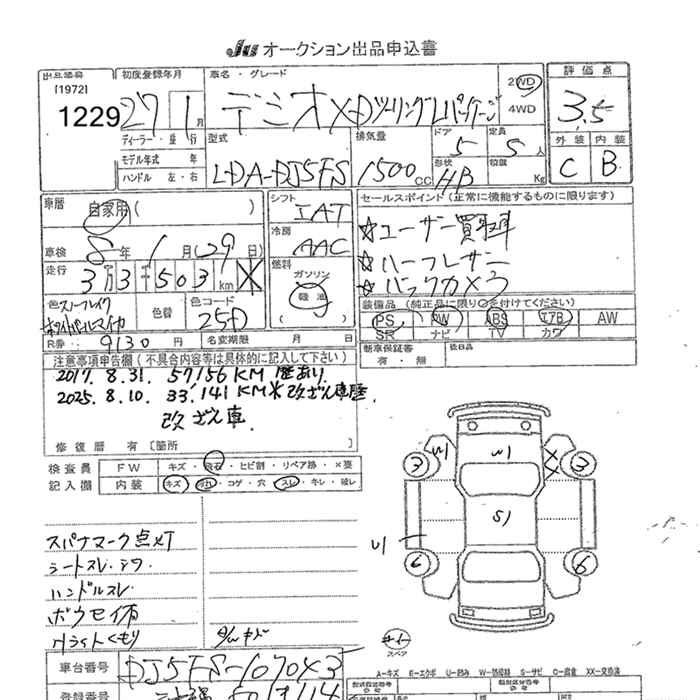 JU オークション出品申込書
出品番号 初度登録年月 車名・グレード 2WD 評価点
[1972] 4WD
1229 27 1月 デミオ XDツーリングLパッケージ 3.5
ディーラー・並行 型式 排気量 ドア 定員 外装 内装
モデル年式 年 LDA-DJ5FS 1500CC 5 5人 C B
ハンドル 左・右 形状 HB 積載 Kg
車歴 自家用( ) シフト IAT セールスポイント(正常に機能するものに限ります)
車検 8年1月(29日) 冷房 AAC ☆ユーザー買取車
走行 3万3千503km 燃料 ☆ハーフレザー
ガソリン ☆バックカメラ
色 スノーフレイクホワイトパールマイカ 色替 色コード 25D 軽油
装備品(純正品に限り○を付けてください)
PS PW ABS エアB AW
SR ナビ TV カワ
R券 9130円 名変期限 月 日 新車保証書 後日品
有・無
注意事項申告欄(不具合内容等は具体的に記入して下さい)
2017. 8.31. 57,156KM 歴あり
2025. 8.10. 33,141KM※改ざん車歴
改ざん車
修復歴 有 [箇所
検査員 FW キズ・飛石・ヒビ割・リペア跡・×要
記入欄 内装 キズ・汚れ・コゲ・穴・スレ・キレ・破レ
W1 W1 XX
3 3
S1
U1
6 6
スパナマーク点灯
シートスレ・シワ
ハンドルスレ
ボウセイ有
Hライトくもり
スペア
車台番号 DJ5FS-107043
A-キズ E-エクボ U-凹み W-板補修 S-サビ C-腐食 XX-交換済
登録番号